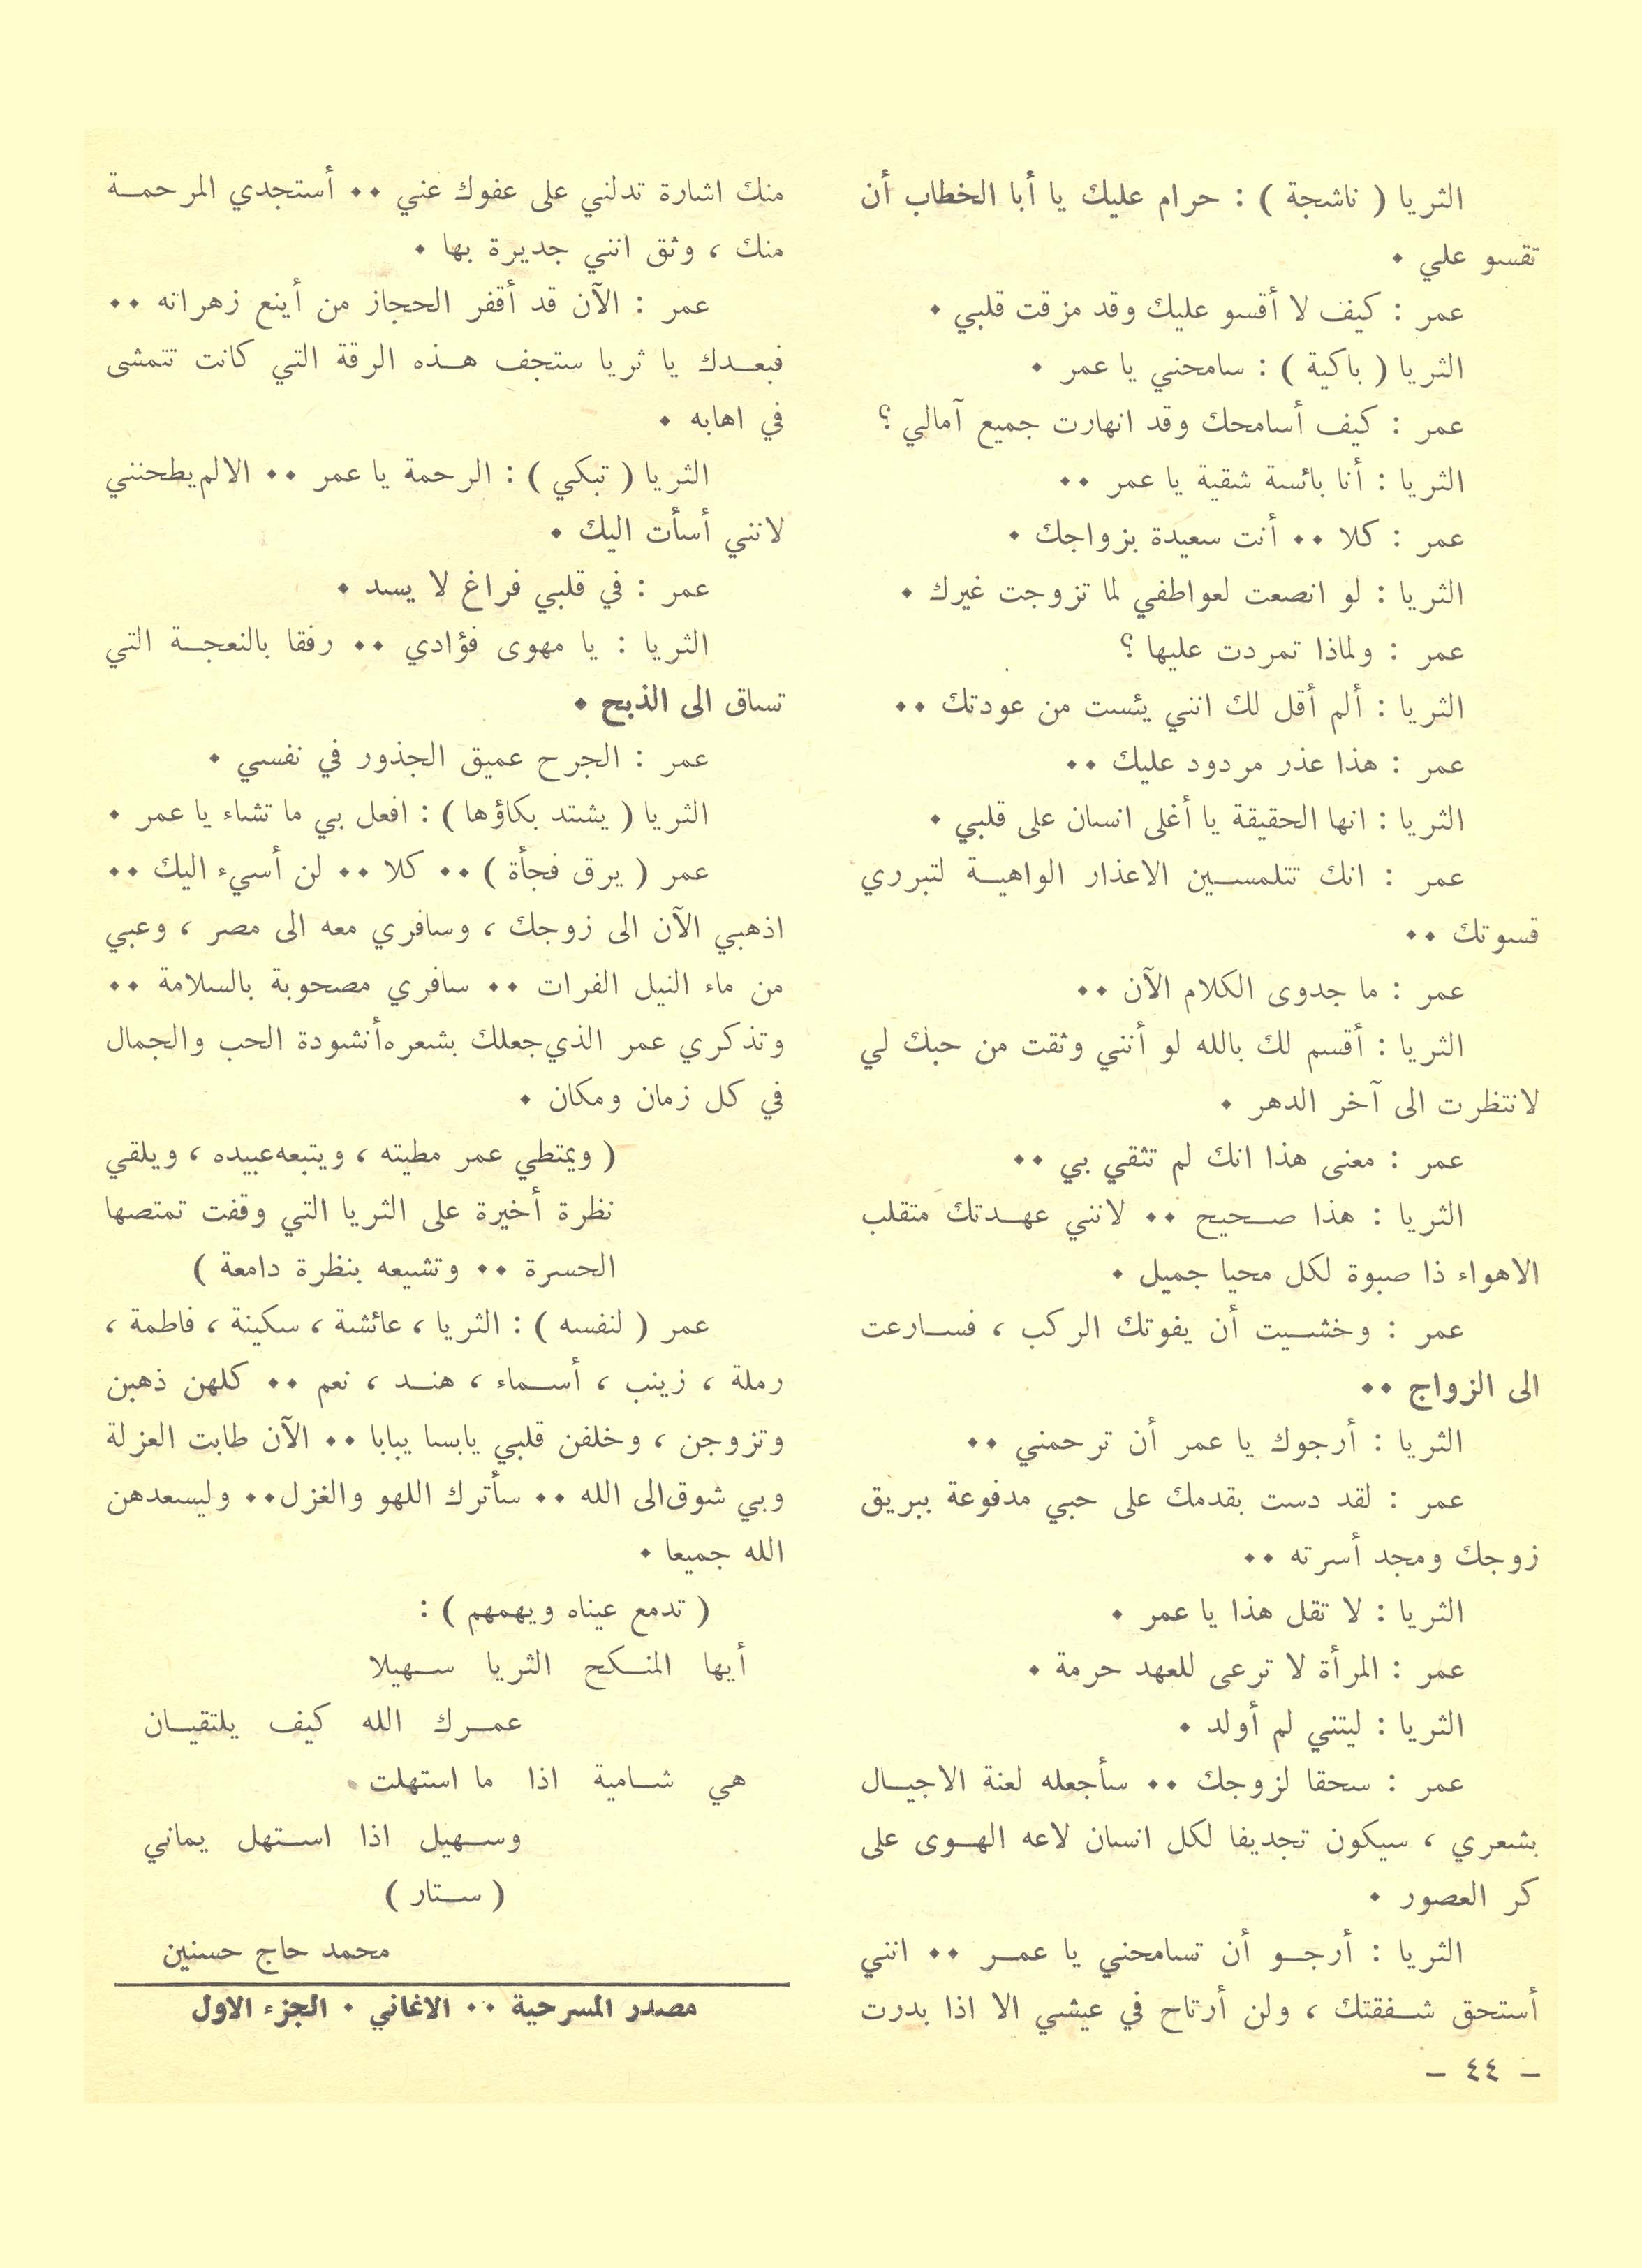 الثريا ( ناشجة ) : حرام عليك يا أبا الخطاب أن
تقسو علي ٠
عمر : كيف لا أقسو عليك وقد مزقت قلبي ٠
الثريا ( باكية ) : سامحني يا عمر ٠
عمر : كيف أسامحك وقد انهارت جميع آمالي ؟
الثريا : أنا بائسة شقية يا عمر ٠٠
عمر : كلا ٠٠ أنت سعيدة بزواجك ٠
الثريا : لو انصعت لعواطفي لما تزوجت غيرك ٠
عمر : ولماذا تمردت عليها ؟
الثريا : ألم أقل لك انني يئست من عودتك ٠٠
عمر : هذا عذر مردود عليك ٠٠
الثريا : انها الحقيقة يا أغلى انسان على قلبي ٠
عمر : انك تتلمسين الاعذار الواهية لتبرري
قسوتك ٠٠
عمر : ما جدوى الكلام الآن ٠٠
الثريا : أقسم لك بالله لو أنني وثقت من حبك لي
لانتظرت الى آخر الدهر ٠
عمر : معنى هذا انك لم تثقي بي ٠٠
الثريا : هذا صحيح ٠٠ لانني عهدتك متقلب
الاهواء ذا صبوة لكل محيا جميل ٠
عمر : وخشيت أن يفوتك الركب ، فسارعت
الى الزواج ٠٠
الثريا : أرجوك يا عمر أن ترحمني ٠٠
عمر : لقد دست بقدمك على حبي مدفوعة ببريق
زوجك ومجد أسرته ٠٠
الثريا : لا تقل هذا يا عمر ٠
عمر : المرأة لا ترعى للعهد حرمة ٠
الثريا : ليتني لم أولد ٠
عمر : سحقا لزوجك ٠٠ سأجعله لعنة الاجيال
بشعري ، سيكون تجديفا لكل انسان لاعه الهوى على
كر العصور ٠
الثريا : أرجو أن تسامحني يا عمر ٠٠ انني
أستحق شفقتك ، ولن أرتاح في عيشي الا اذا بدرت
منك اشارة تدلني على عفوك عني ٠٠ أستجدي المرحمة
منك ، وثق انني جديرة بها ٠
عمر : الآن قد أقفر الحجاز من أينع زهراته ٠٠
فبعدك يا ثريا ستجف هذه الرقة التي كانت تتمشى
في اهابه ٠
الثريا ( تبكي ) : الرحمة يا عمر ٠٠ الالم يطحنني
لانني أسأت اليك ٠
عمر : في قلبي فراغ لا يسد ٠
الثريا : يا مهوى فؤادي ٠٠ رفقا بالنعجة التي
تساق الى الذبح ٠
عمر : الجرح عميق الجذور في نفسي ٠
الثريا ( يشتد بكاؤها ) : افعل بي ما تشاء يا عمر ٠
عمر ( يرق فجأة ) ٠٠ كلا ٠٠ لن أسيء اليك ٠٠
اذهبي الآن الى زوجك ، وسافري معه الى مصر ، وعبي
من ماء النيل الفرات ٠٠ سافري مصحوبة بالسلامة ٠٠
وتذكري عمر الذي جعلك بشعره أنشودة الحب والجمال
في كل زمان ومكان ٠
( ويمتطي عمر مطيته ، ويتبعه عبيده ، ويلقي
نظرة أخيرة على الثريا التي وقفت تمتصها
الحسرة ٠٠ وتشيعه بنظرة دامعة )
عمر ( لنفسه ) : الثريا ، عائشة ، سكينة ، فاطمة ،
رملة ، زينب ، أسماء ، هند ، نعم ٠٠ كلهن ذهبن
وتزوجن ، وخلفن قلبي يابسا يبابا ٠٠ الآن طابت العزلة
وبي شوق الى الله ٠٠ سأترك اللهو والغزل ٠٠ وليسعدهن
الله جميعا ٠
( تدمع عيناه ويهمهم ) :
أيها المنكح الثريا سهيلا
عمرك الله كيف يلتقيان
هي شامية اذا ما استهلت
وسهيل اذا استهل يماني
( ستار )
محمد حاج حسنين
مصدر المسرحية ٠٠ الاغاني ٠ الجزء الاول
– ٤٤ –